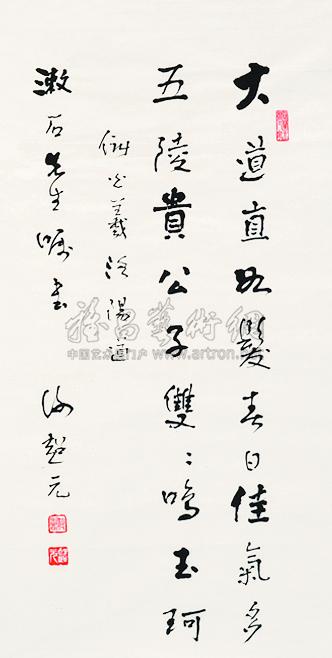 大道直如髮春日佳氣多
五陵貴公子雙〻鳴玉珂
儲光羲洛陽道
漱石先生囑書 沈超元
雅昌藝術網
中国艺术品门户 www.artron.net